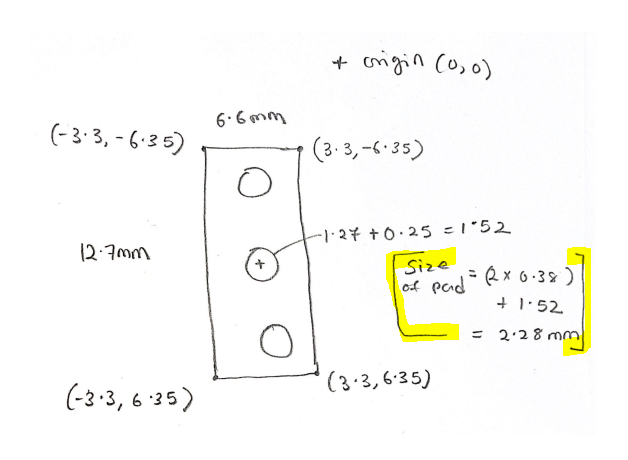 + origin (0,0)
6.6mm
(-3.3, -6.35)
(3.3, -6.35)
1.27 + 0.25 = 1.52
12.7mm
+
Size of pad = (2 x 0.38)
+ 1.52
= 2.28 mm
(3.3, 6.35)
(-3.3, 6.35)